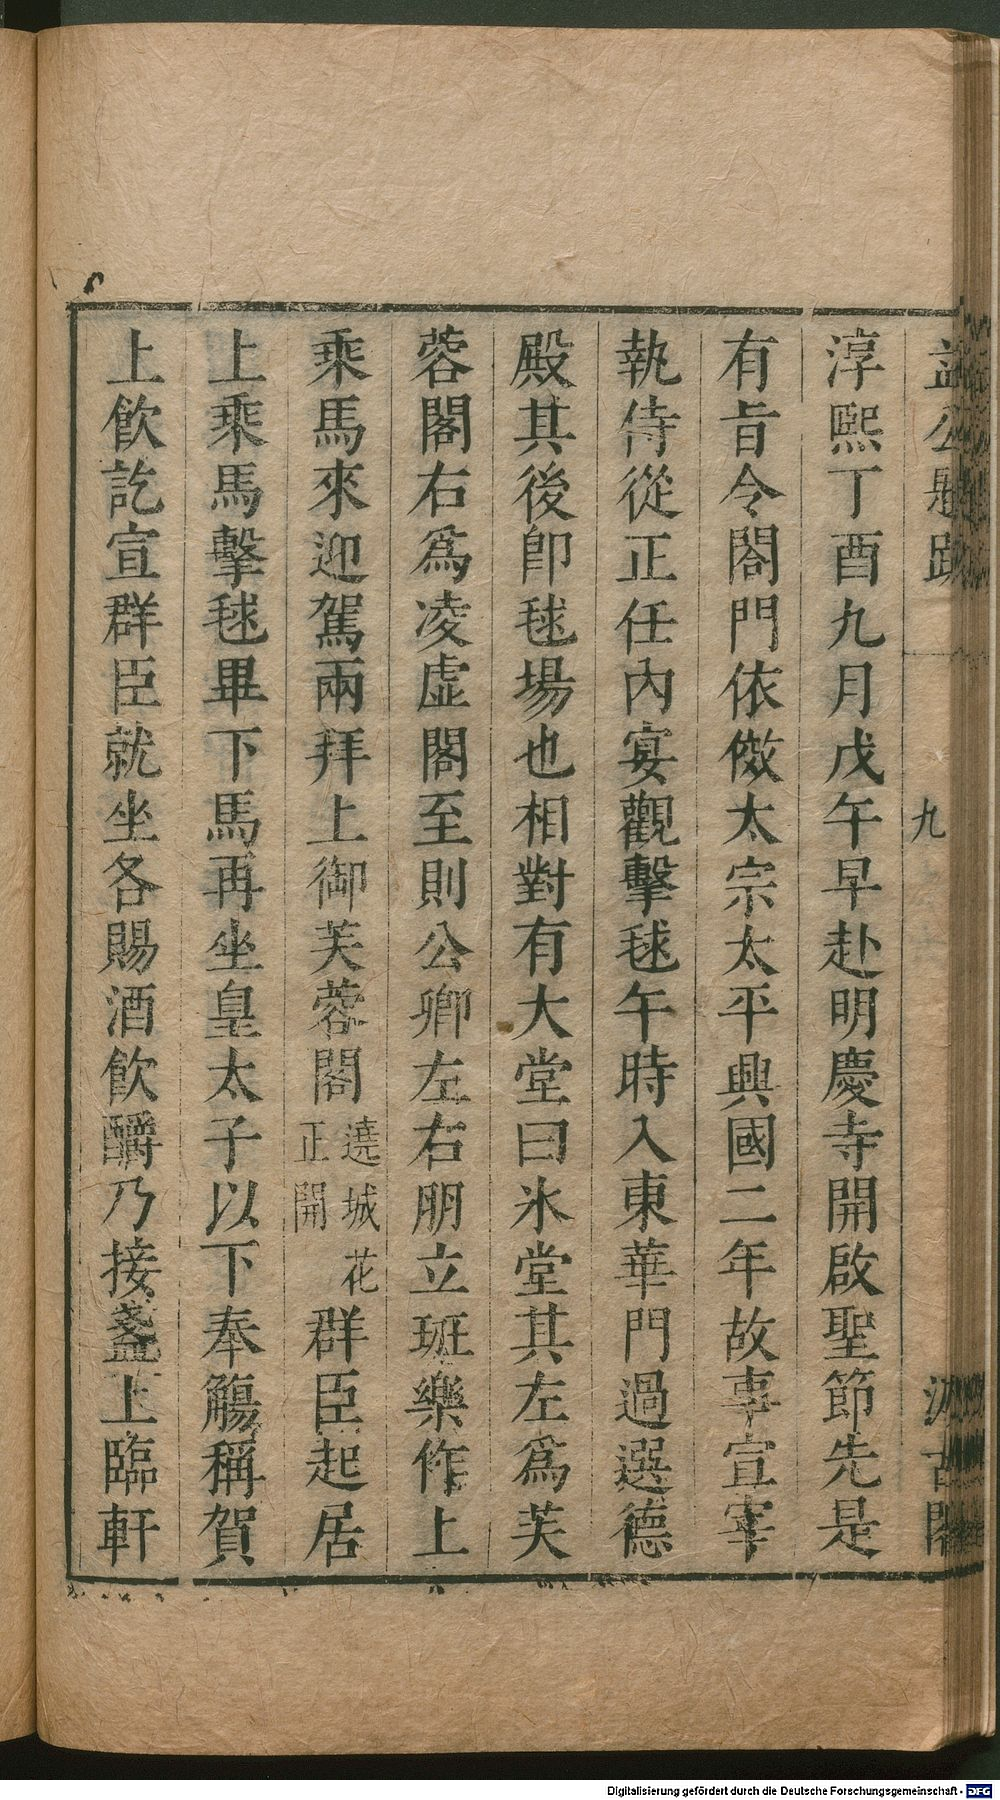 益公題跋 九 汲古閣
淳熙丁酉九月戊午早赴明慶寺開啟聖節先是
有旨令閤門依倣太宗太平興國二年故事宣宰
執侍從正任內宴觀擊毬午時入東華門過選德
殿其後卽毬場也相對有大堂曰氷堂其左為芙
蓉閣右為凌虛閣至則公卿左右朋立班樂作上
乘馬來迎駕兩拜上御芙蓉閣遶城花正開群臣起居
上乘馬擊毬畢下馬再坐皇太子以下奉觴稱賀
上飲訖宣群臣就坐各賜酒飲釂乃接盞上臨軒
Digitalisierung gefördert durch die Deutsche Forschungsgemeinschaft - DFG